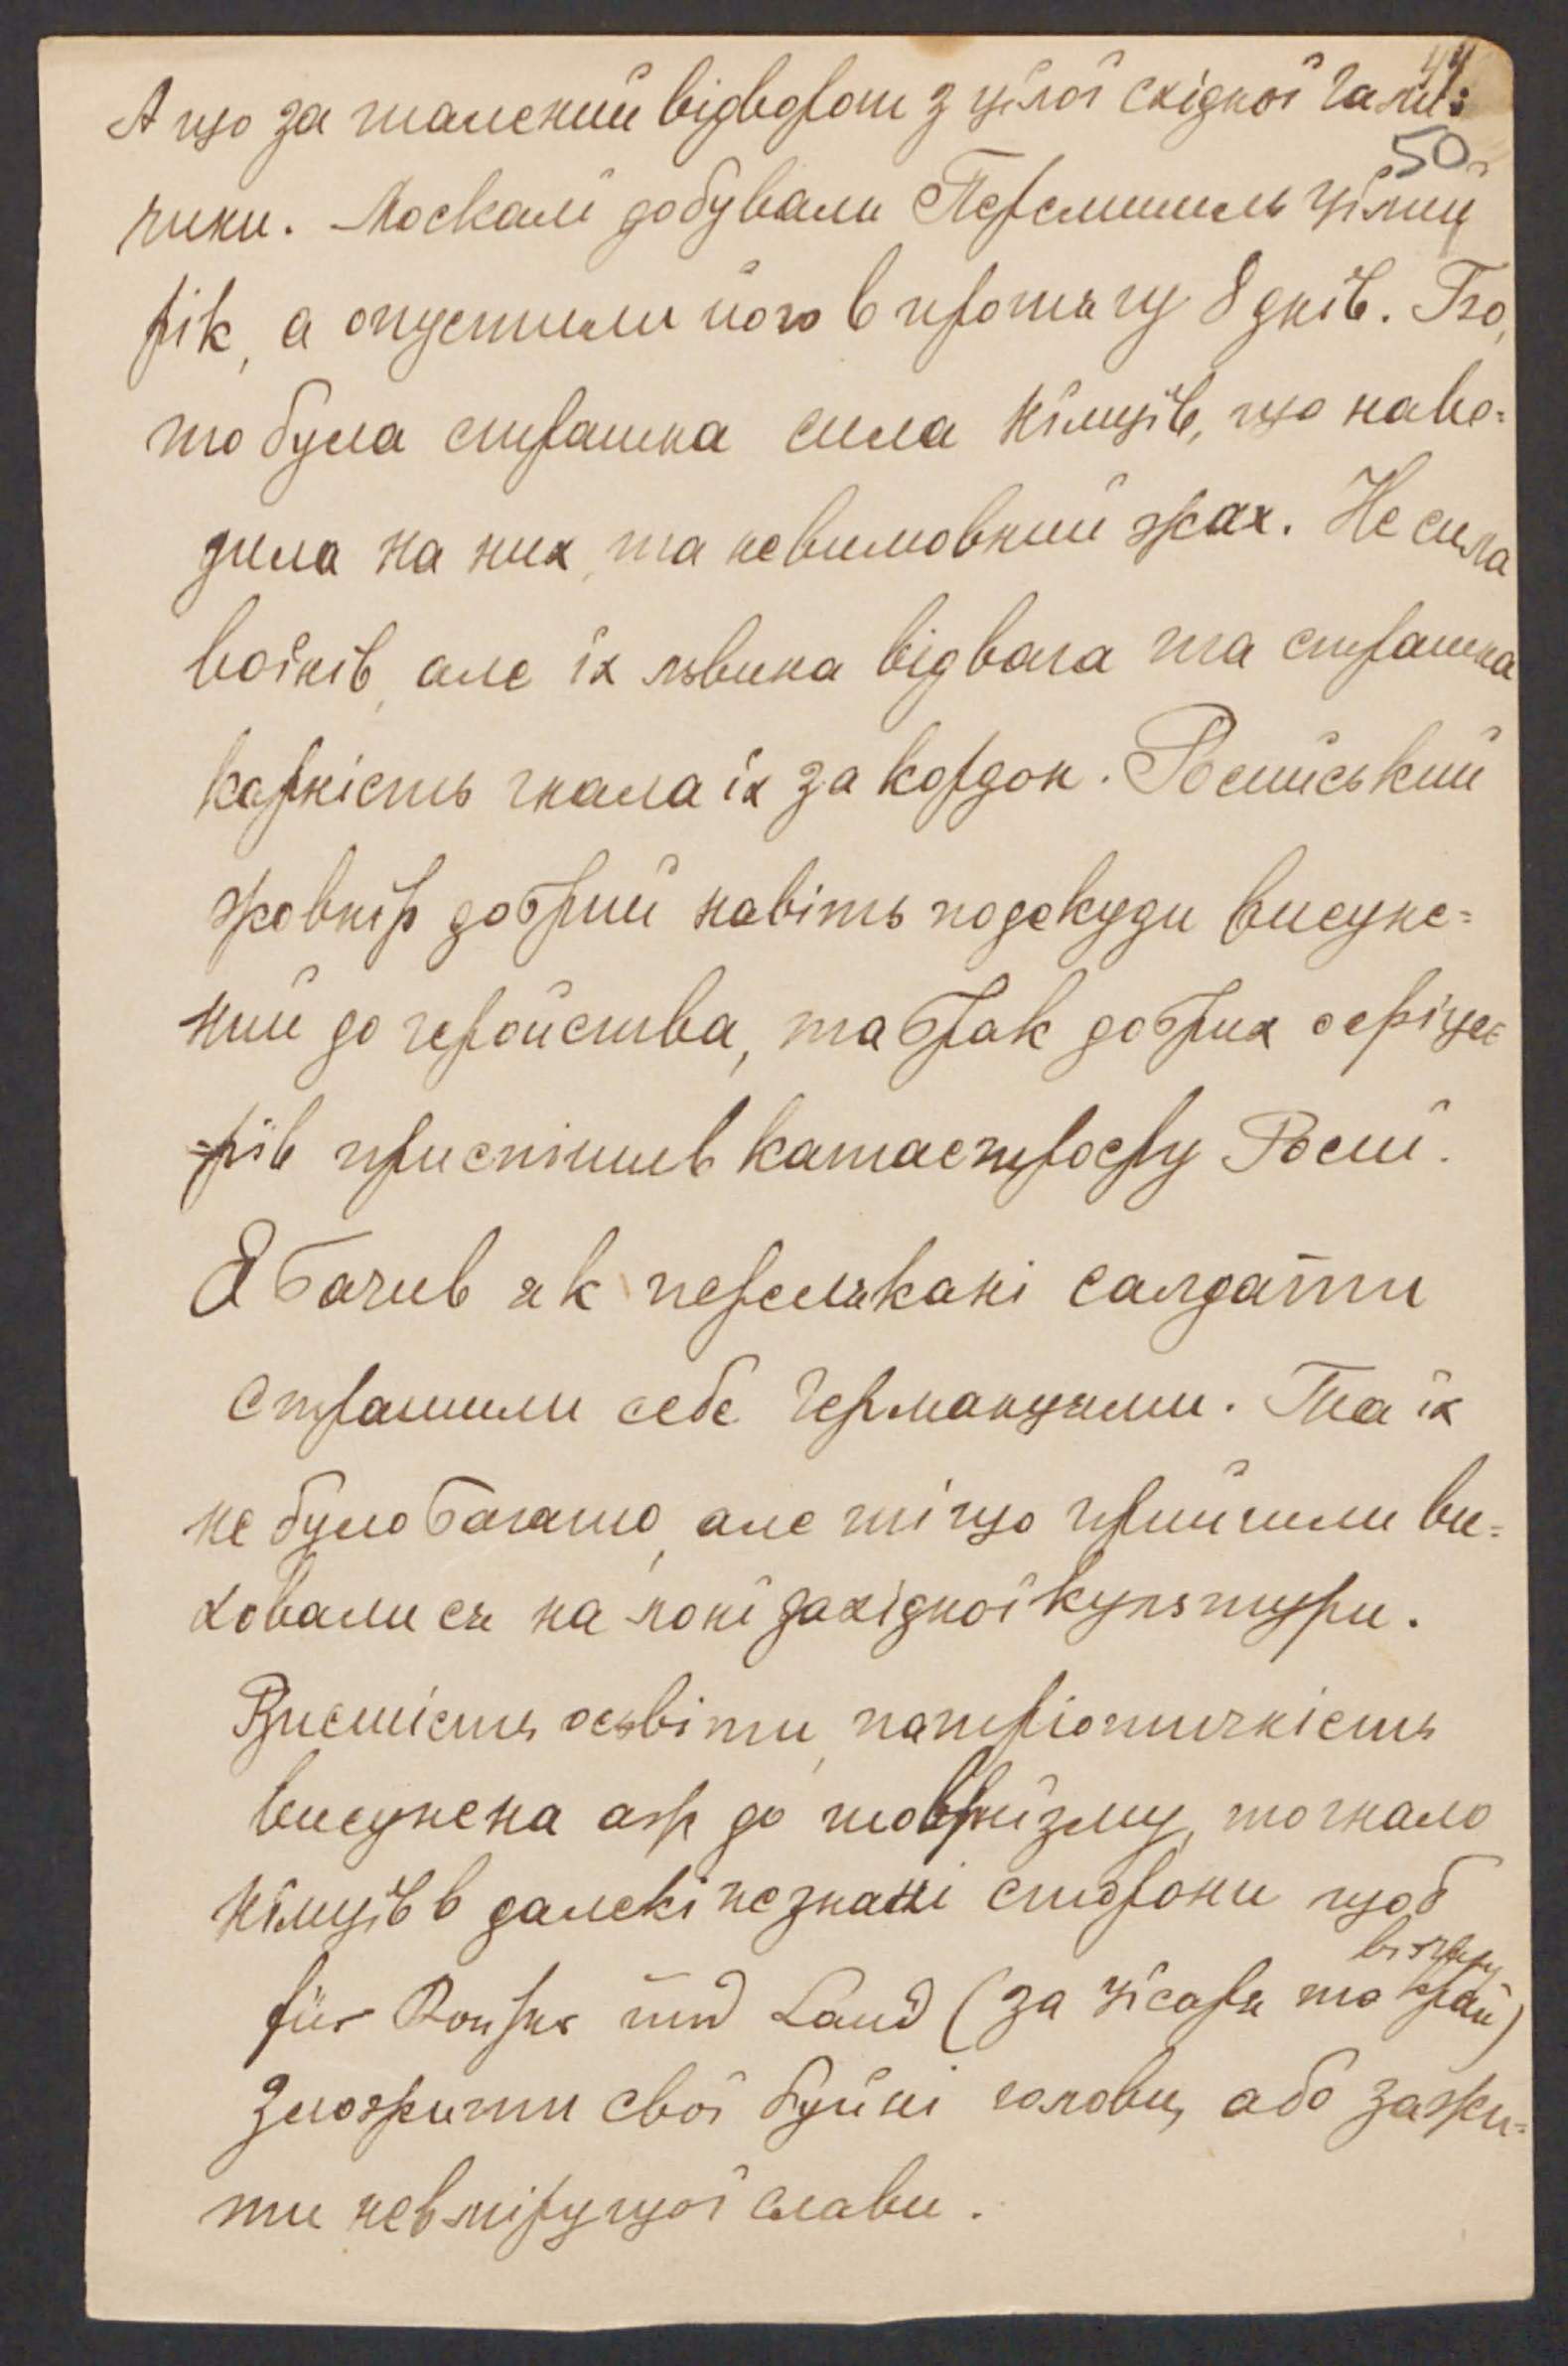 44
А що за шалений відворот з цілої східної Гали=
50
чини. Москалі добували Перемишль цілий
рік, а опустили його в протягу 8 днів. Бо,
то була страшна сила німців, що наво=
дила на них, та невимовний жах. Не сила
воїнів, але їх львина відвага та страшна
карність гнала їх за кордон. Росийський
жовнір добрий навіть подекуди висуне=
ний до геройства, та брак добрих офіце=
=рів приспішив катастрофу Росиї.
Я бачив як перелякані салдати
страшили себе Германцями. Та їх
не було богато, але ті що прийшли ви=
ховали ся на лоні західної культури.
Висшість осьвіти, патріотичність
висунена аж до шовінїзму, то гнало
німців в далекі незнані сторони щоб
für Kaiser und Land (за цїсаря та край)
зложити свої буйні голови, або зажи=
ти невміружої слави.